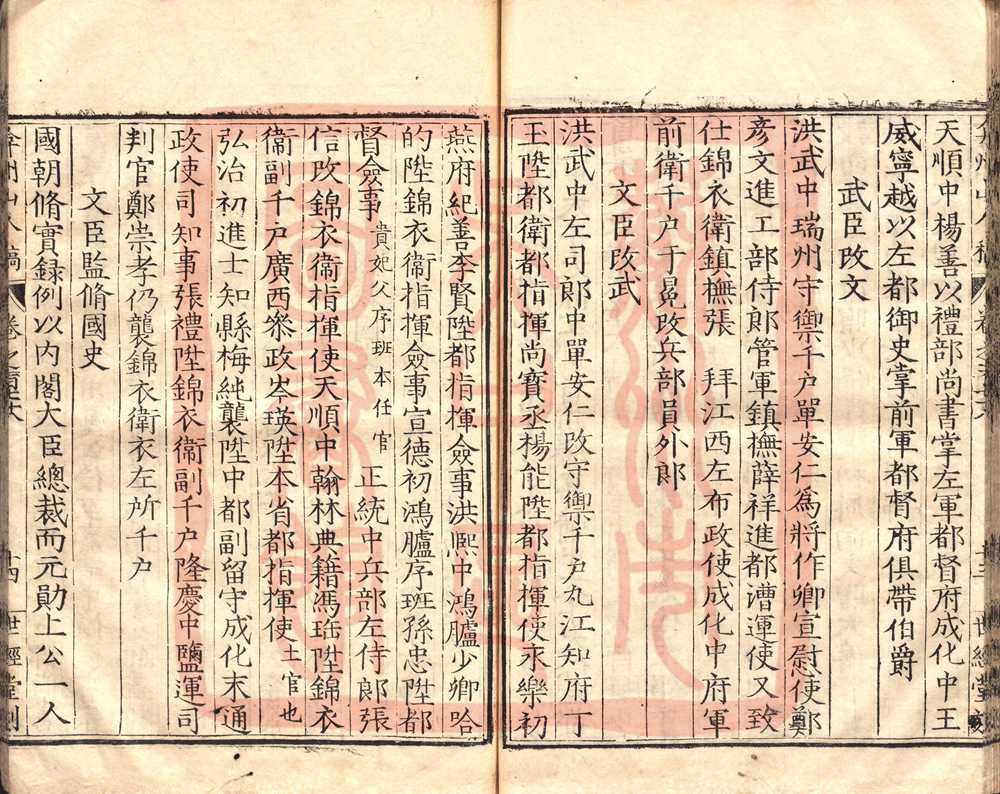 天順中楊善以禮部尚書掌左軍都督府成化中王
威寧越以左都御史掌前軍都督府俱帶伯爵
武臣改文
洪武中瑞州守禦千户單安仁爲將作卿宣慰使鄭
彥文進工部侍郎管軍鎮撫薛祥進都漕運使又致
仕錦衣衛鎮撫張 拜江西左布政使成化中府軍
前衛千户于冕改兵部員外郎
文臣改武
洪武中左司郎中單安仁改守禦千户九江知府丁
玉陞都衛都指揮尚寶丞楊能陞都指揮使永樂初
燕府紀善李賢陞都指揮僉事洪熙中鴻臚少卿哈
的陞錦衣衛指揮僉事宣德初鴻臚序班孫忠陞都
督僉事貴妃父序班本任官正統中兵部左侍郎張
信改錦衣衛指揮使天順中翰林典籍馮珤陞錦衣
衛副千户廣西叅政岑瑛陞本省都指揮使土官也
弘治初進士知縣梅純襲陞中都副留守成化末通
政使司知事張禮陞錦衣衛副千户隆慶中鹽運司
判官鄭崇孝仍襲錦衣衛衣左所千户
文臣監脩國史
國朝脩實録例以内閣大臣總裁而元勛上公一人
弇州山人稿 卷之 十四 世經堂刻